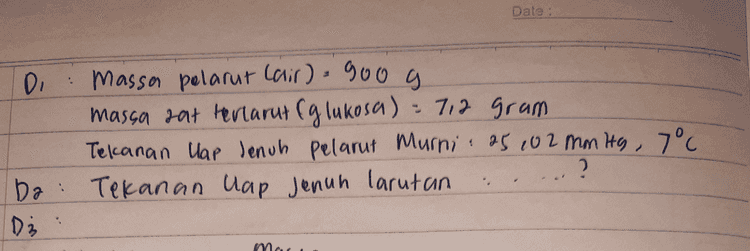 Date :
D1 : Massa pelarut (air) = 900 g
Massa zat terlarut (glukosa) = 7,2 gram
Tekanan Uap Jenuh pelarut Murni : 25,02 mmHg, 7°C
D2 : Tekanan Uap Jenuh larutan : . . ...?
D3 :